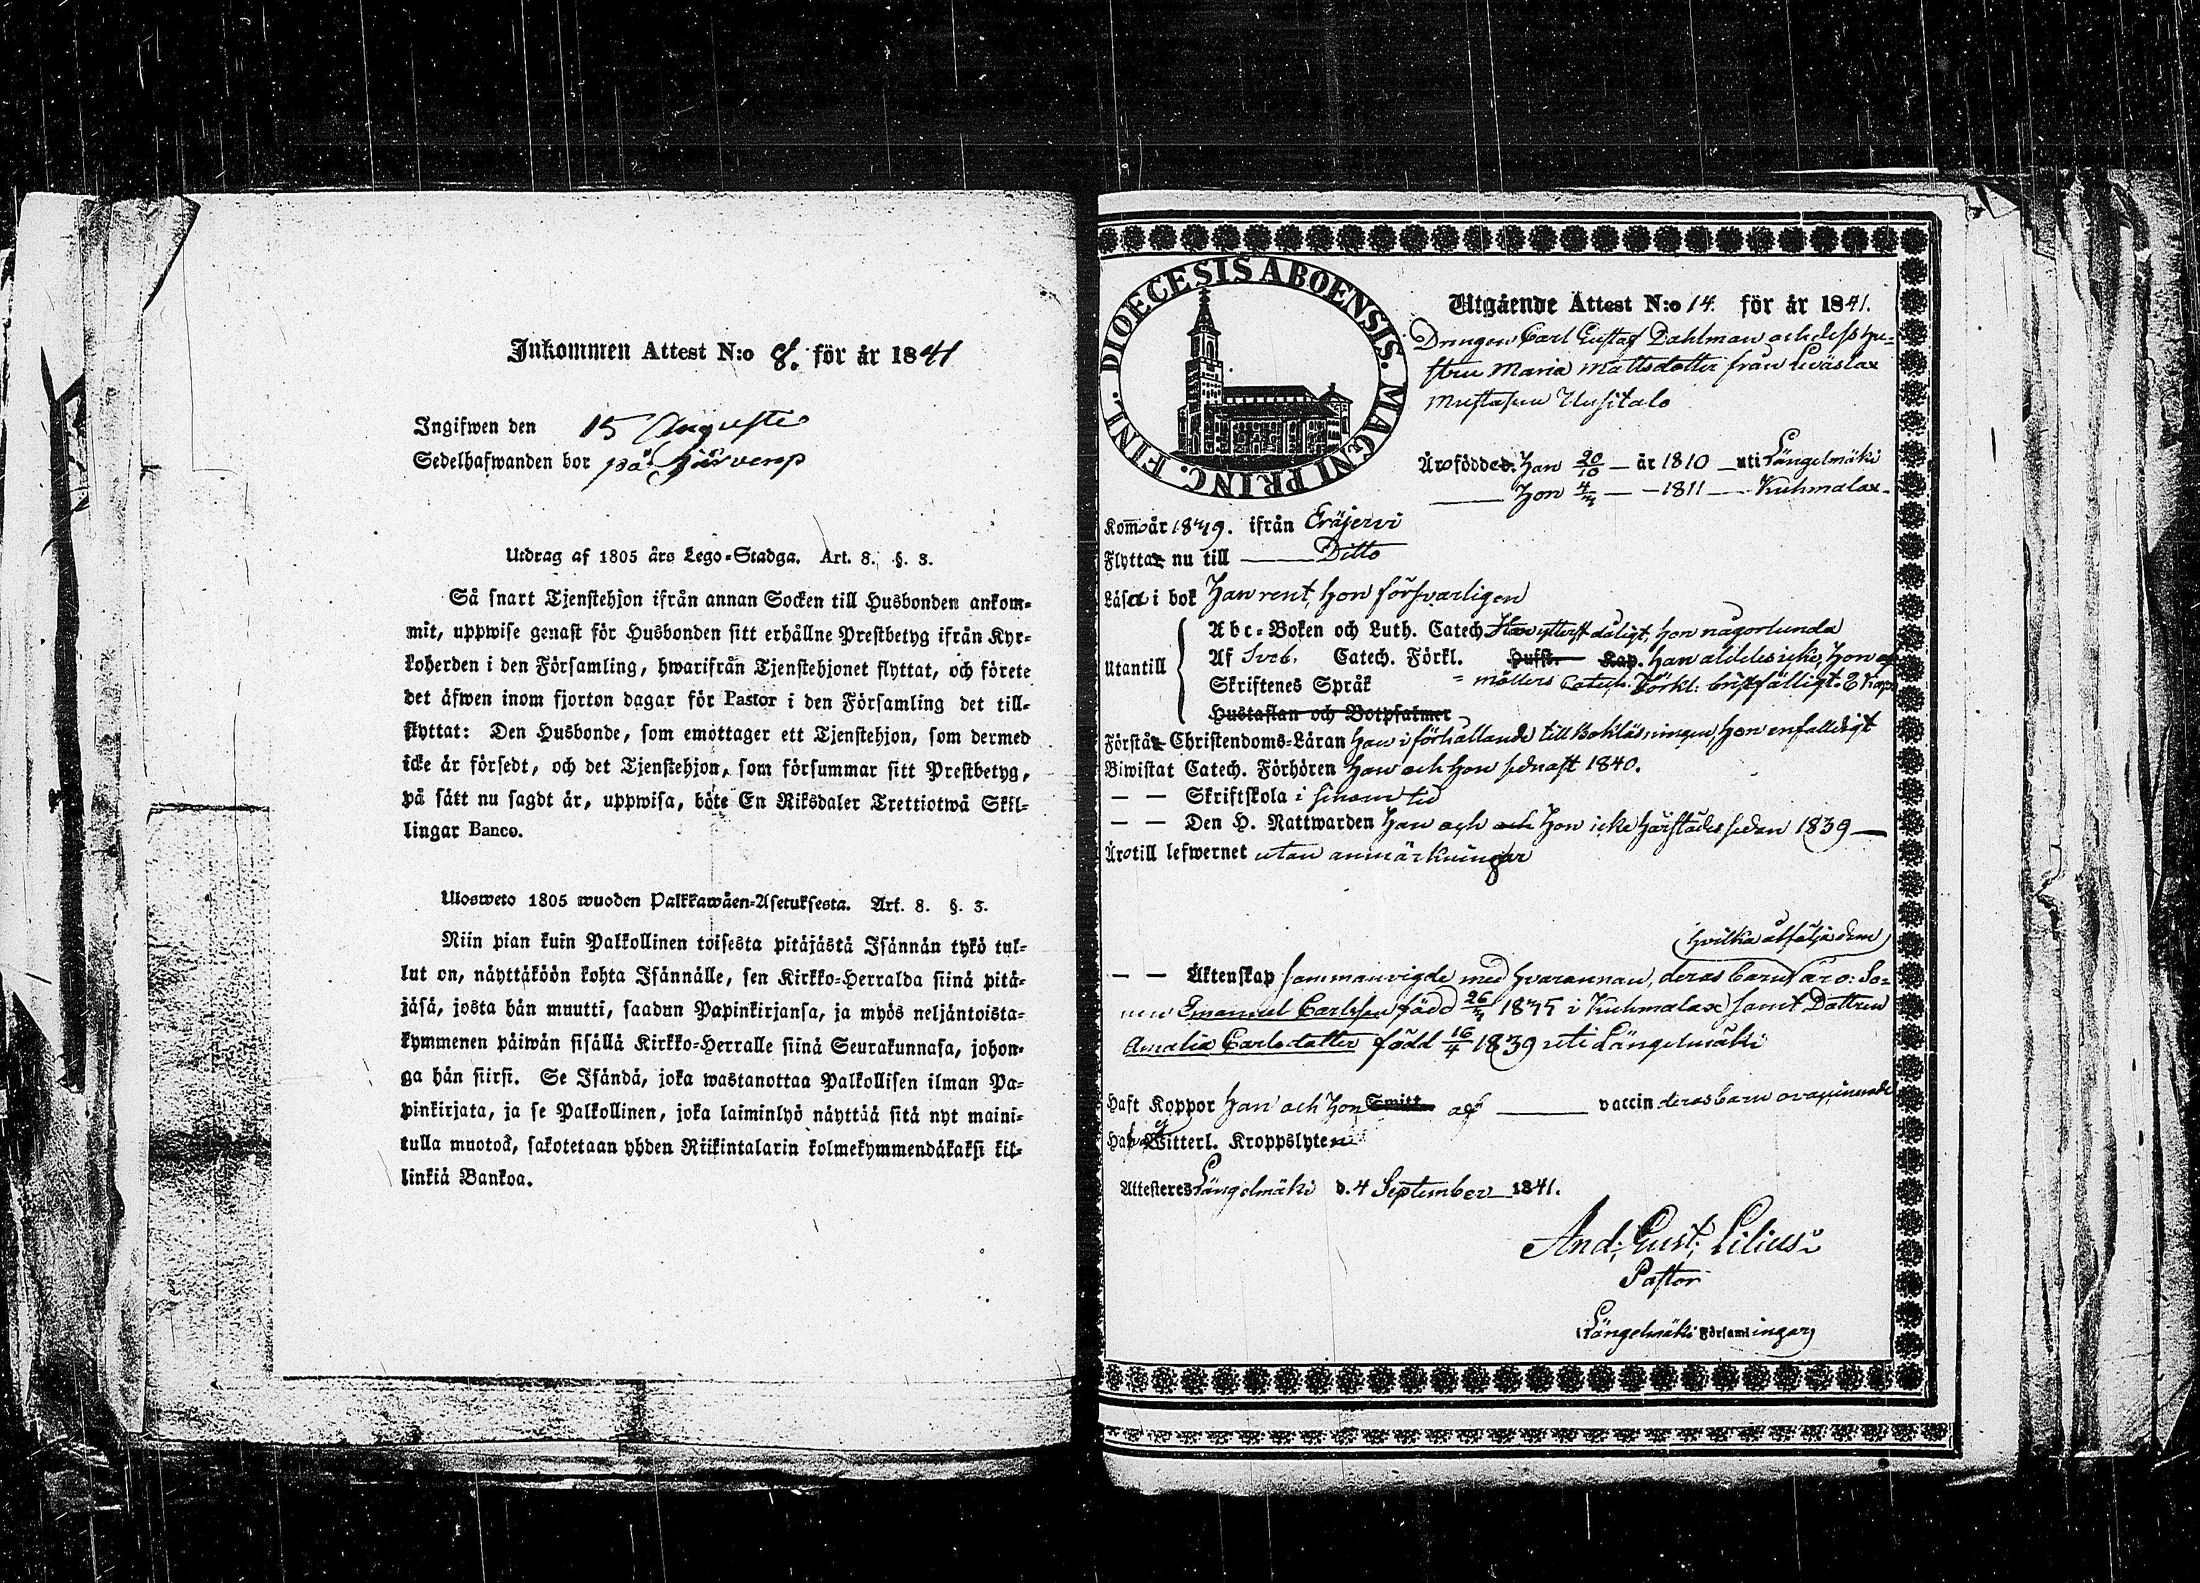 Inkommen Attest N:o 8. för år 1841
Ingifwen den 15 Augusti
Sedelhafwanden bor på
Utdrag af 1805 års Lego-Stadga. Art. 8. §. 3.
Så snart Tjenstehjon ifrån annan Socken till Husbonden ankom-
mit, uppwise genast för Husbonden sitt erhållne Prestbetyg ifrån Kyr-
koherden i den Församling, hwarifrån Tjenstehjonet flyttat, och förete
det äfwen inom fjorton dagar för Pastor i den Församling det till-
flyttat: Den Husbonde, som emottager ett Tjenstehjon, som dermed
icke är försedt, och det Tjenstehjon, som försummar sitt Prestbetyg,
på sätt nu sagdt är, uppwisa, böte En Riksdaler Trettiotwå Skil-
lingar Banco.
Ulosweto 1805 wuoden Palkkawäen-Asetuksesta. Art. 8. §. 3.
Niin pian kuin Palkollinen toisesta pitäjästä Isännän tykö tul-
lut on, näyttäköön kohta Isännälle, sen Kirkko-Herralda siinä pitä-
jäsä, josta hän muutti, saadun Papinkirjansa, ja myös neljäntoista-
kymmenen päiwän sisällä Kirkko-Herralle siinä Seurakunnasa, johon-
ga hän siirsi. Se Isändä, joka wastanottaa Palkollisen ilman Pa-
pinkirjata, ja se Palkollinen, joka laiminlyö näyttää sitä nyt maini-
tulla muotoa, sakotetaan yhden Riikintalarin kolmekymmendäkaksi kil-
linkiä Bankoa.
DIOECESIS ABOENSIS. MAGNI PRINC. FINL.
Utgående Attest N:o 14. för år 1841.
Drängen Carl Gustaf Dahlman och dess hu-
stru Maria Mattsdotter från Leväslax
Mustasuu Uusitalo
Äro födde: Han 20/10 — år 1810 — uti Längelmäki
Hon 4/4 — — 1811 — Kuhmalax.
Kommo år 1839. ifrån Eräjervi
Flytta nu till — Ditto
Läsa i bok Han rent, hon försvarligen
Utantill
Abc-Boken och Luth. Catech. Han ytterst dåligt, hon någorlunda
Af Sveb. Catech. Förkl. Husst. Kap. han alldeles icke, hon af
Skriftenes Språk möllers Catech. Förkl. bristfälligt. 2 Kap.
Hustaflan och Botpsalmer
Förstå Christendoms-Läran han i förhållande till Bokläsningen, hon enfalldigt
Biwistat Catech. Förhören han och hon sednast 1840.
— — Skriftskola i sinom tid
— — Den H. Nattwarden han och och hon icke härstädes sedan 1839 —
Äro till lefwernet utan anmärkningar
(hvilka åtfölja dem)
— — Äktenskap sammanvigde med hvarannan, deras barn äro: So-
nen Emanuel Carlsson född 26/4 1835 i Kuhmalax samt Dottren
Amalia Carlsdotter född 16/4 1839 uti Längelmäki
Haft Koppor han och hon Smitt. af — vaccin deras barn ovaccinerade
Hafva Witterl. Kroppslyten
Attesteres Längelmäki d. 4 September 1841.
And: Gust: Lilius
Pastor
Längelmäki Församlingar